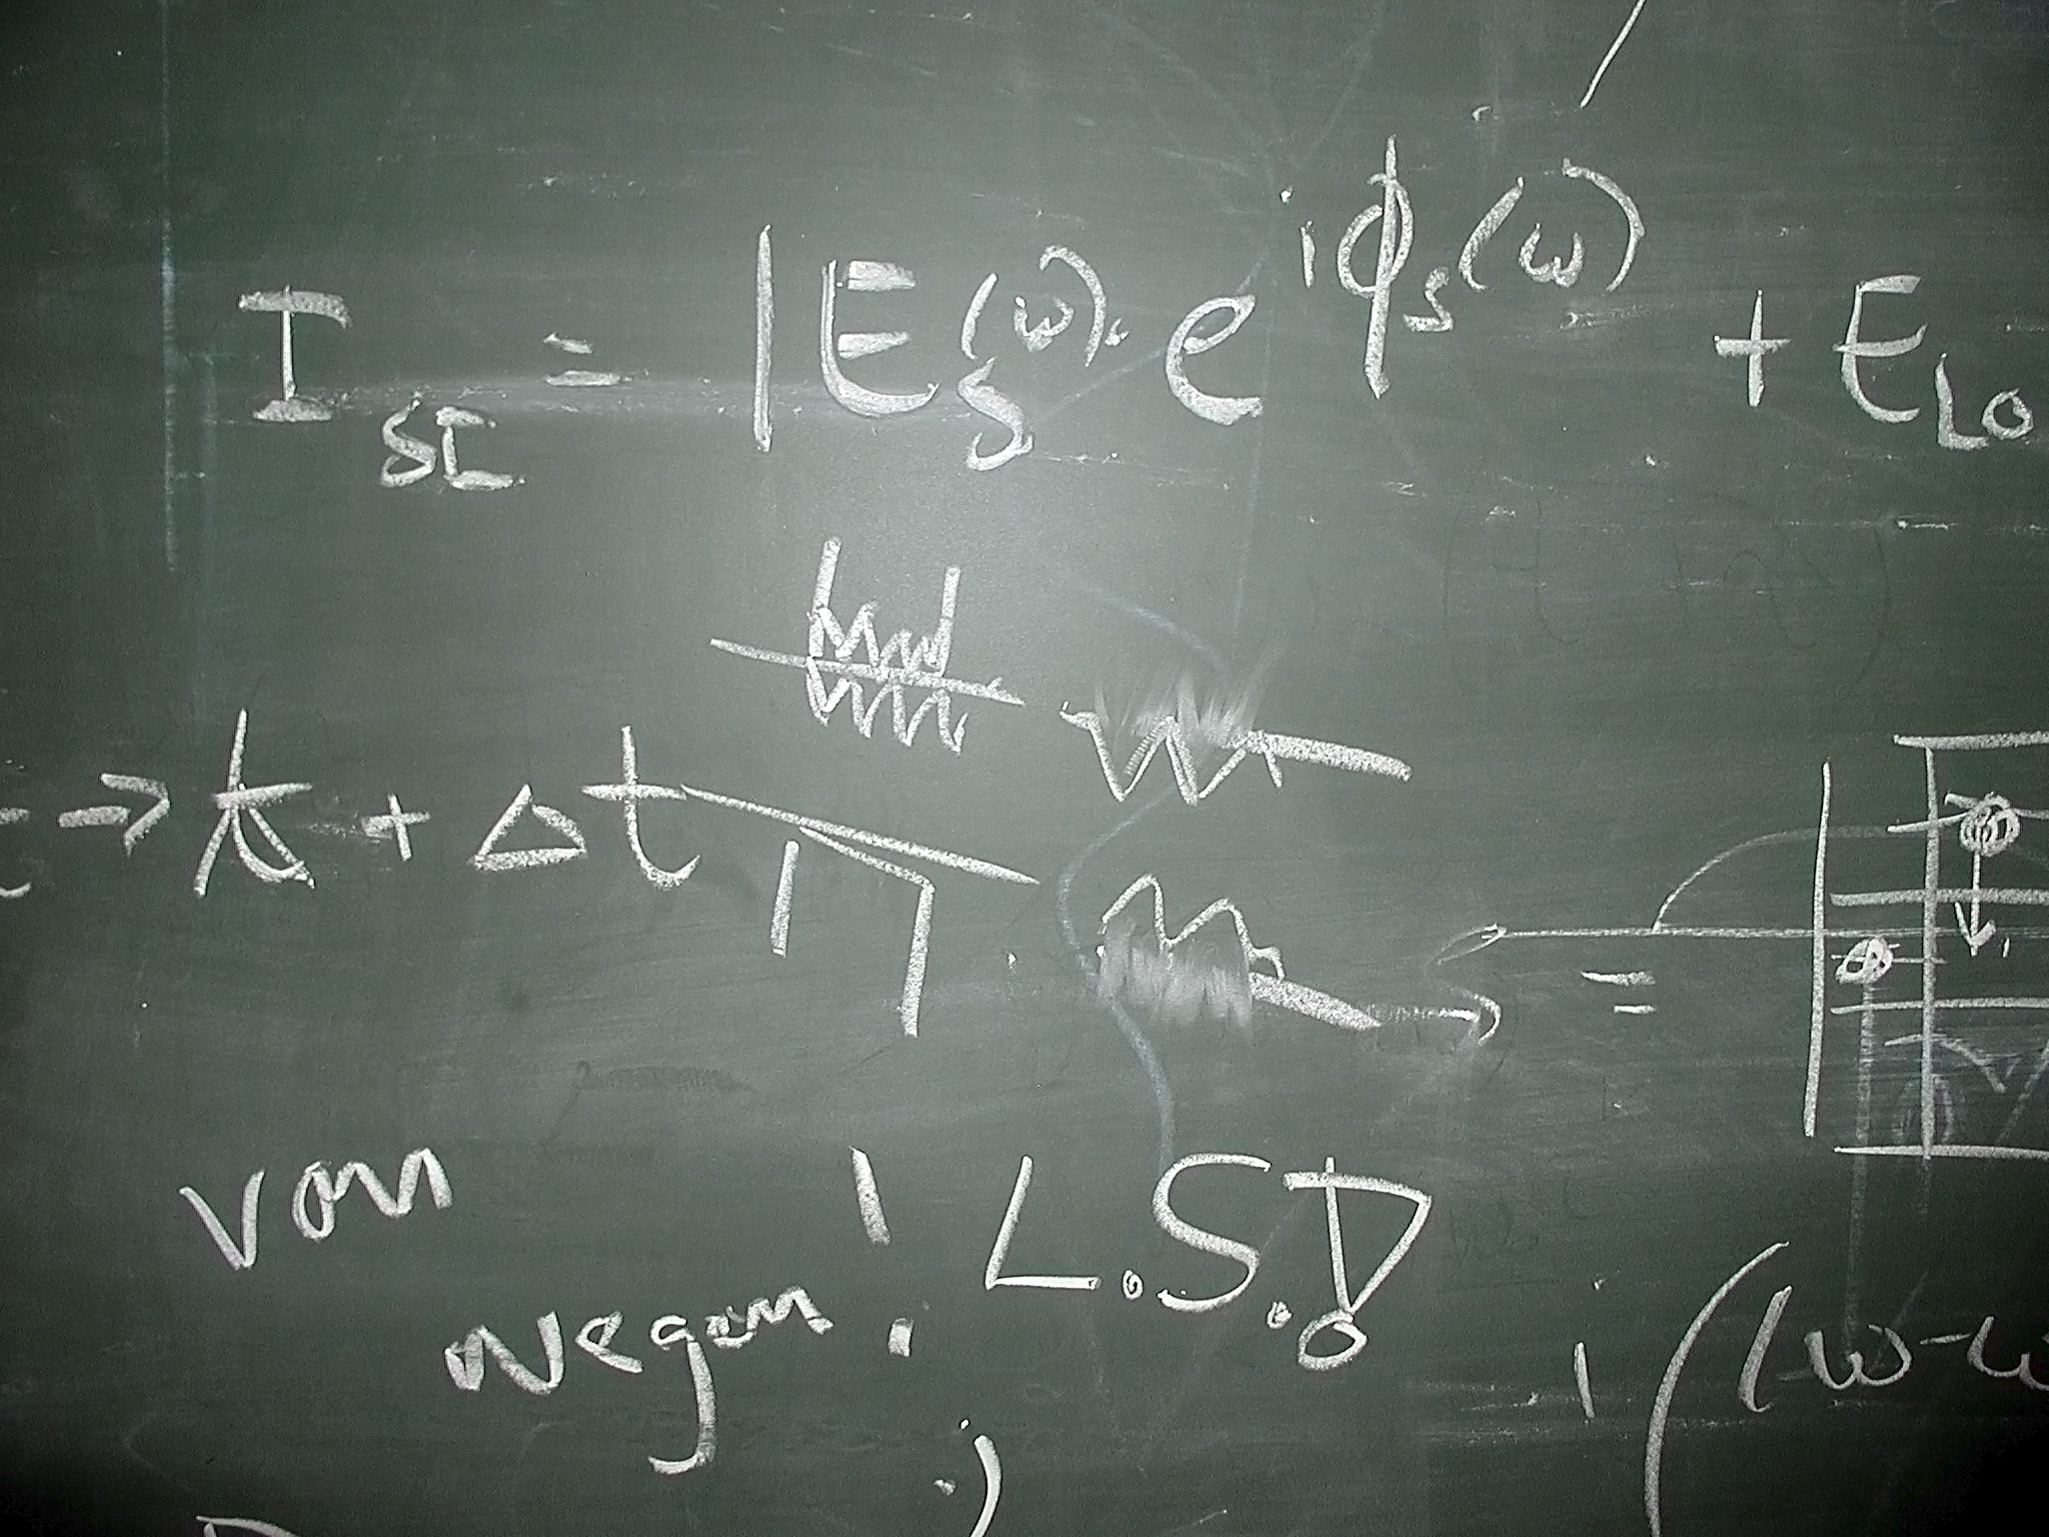 I_SI = |E_S(ω)· e^iϕ_s(ω) + E_LO
→ t + Δt
=
von
wegen! L.S.D.
i((ω-ω